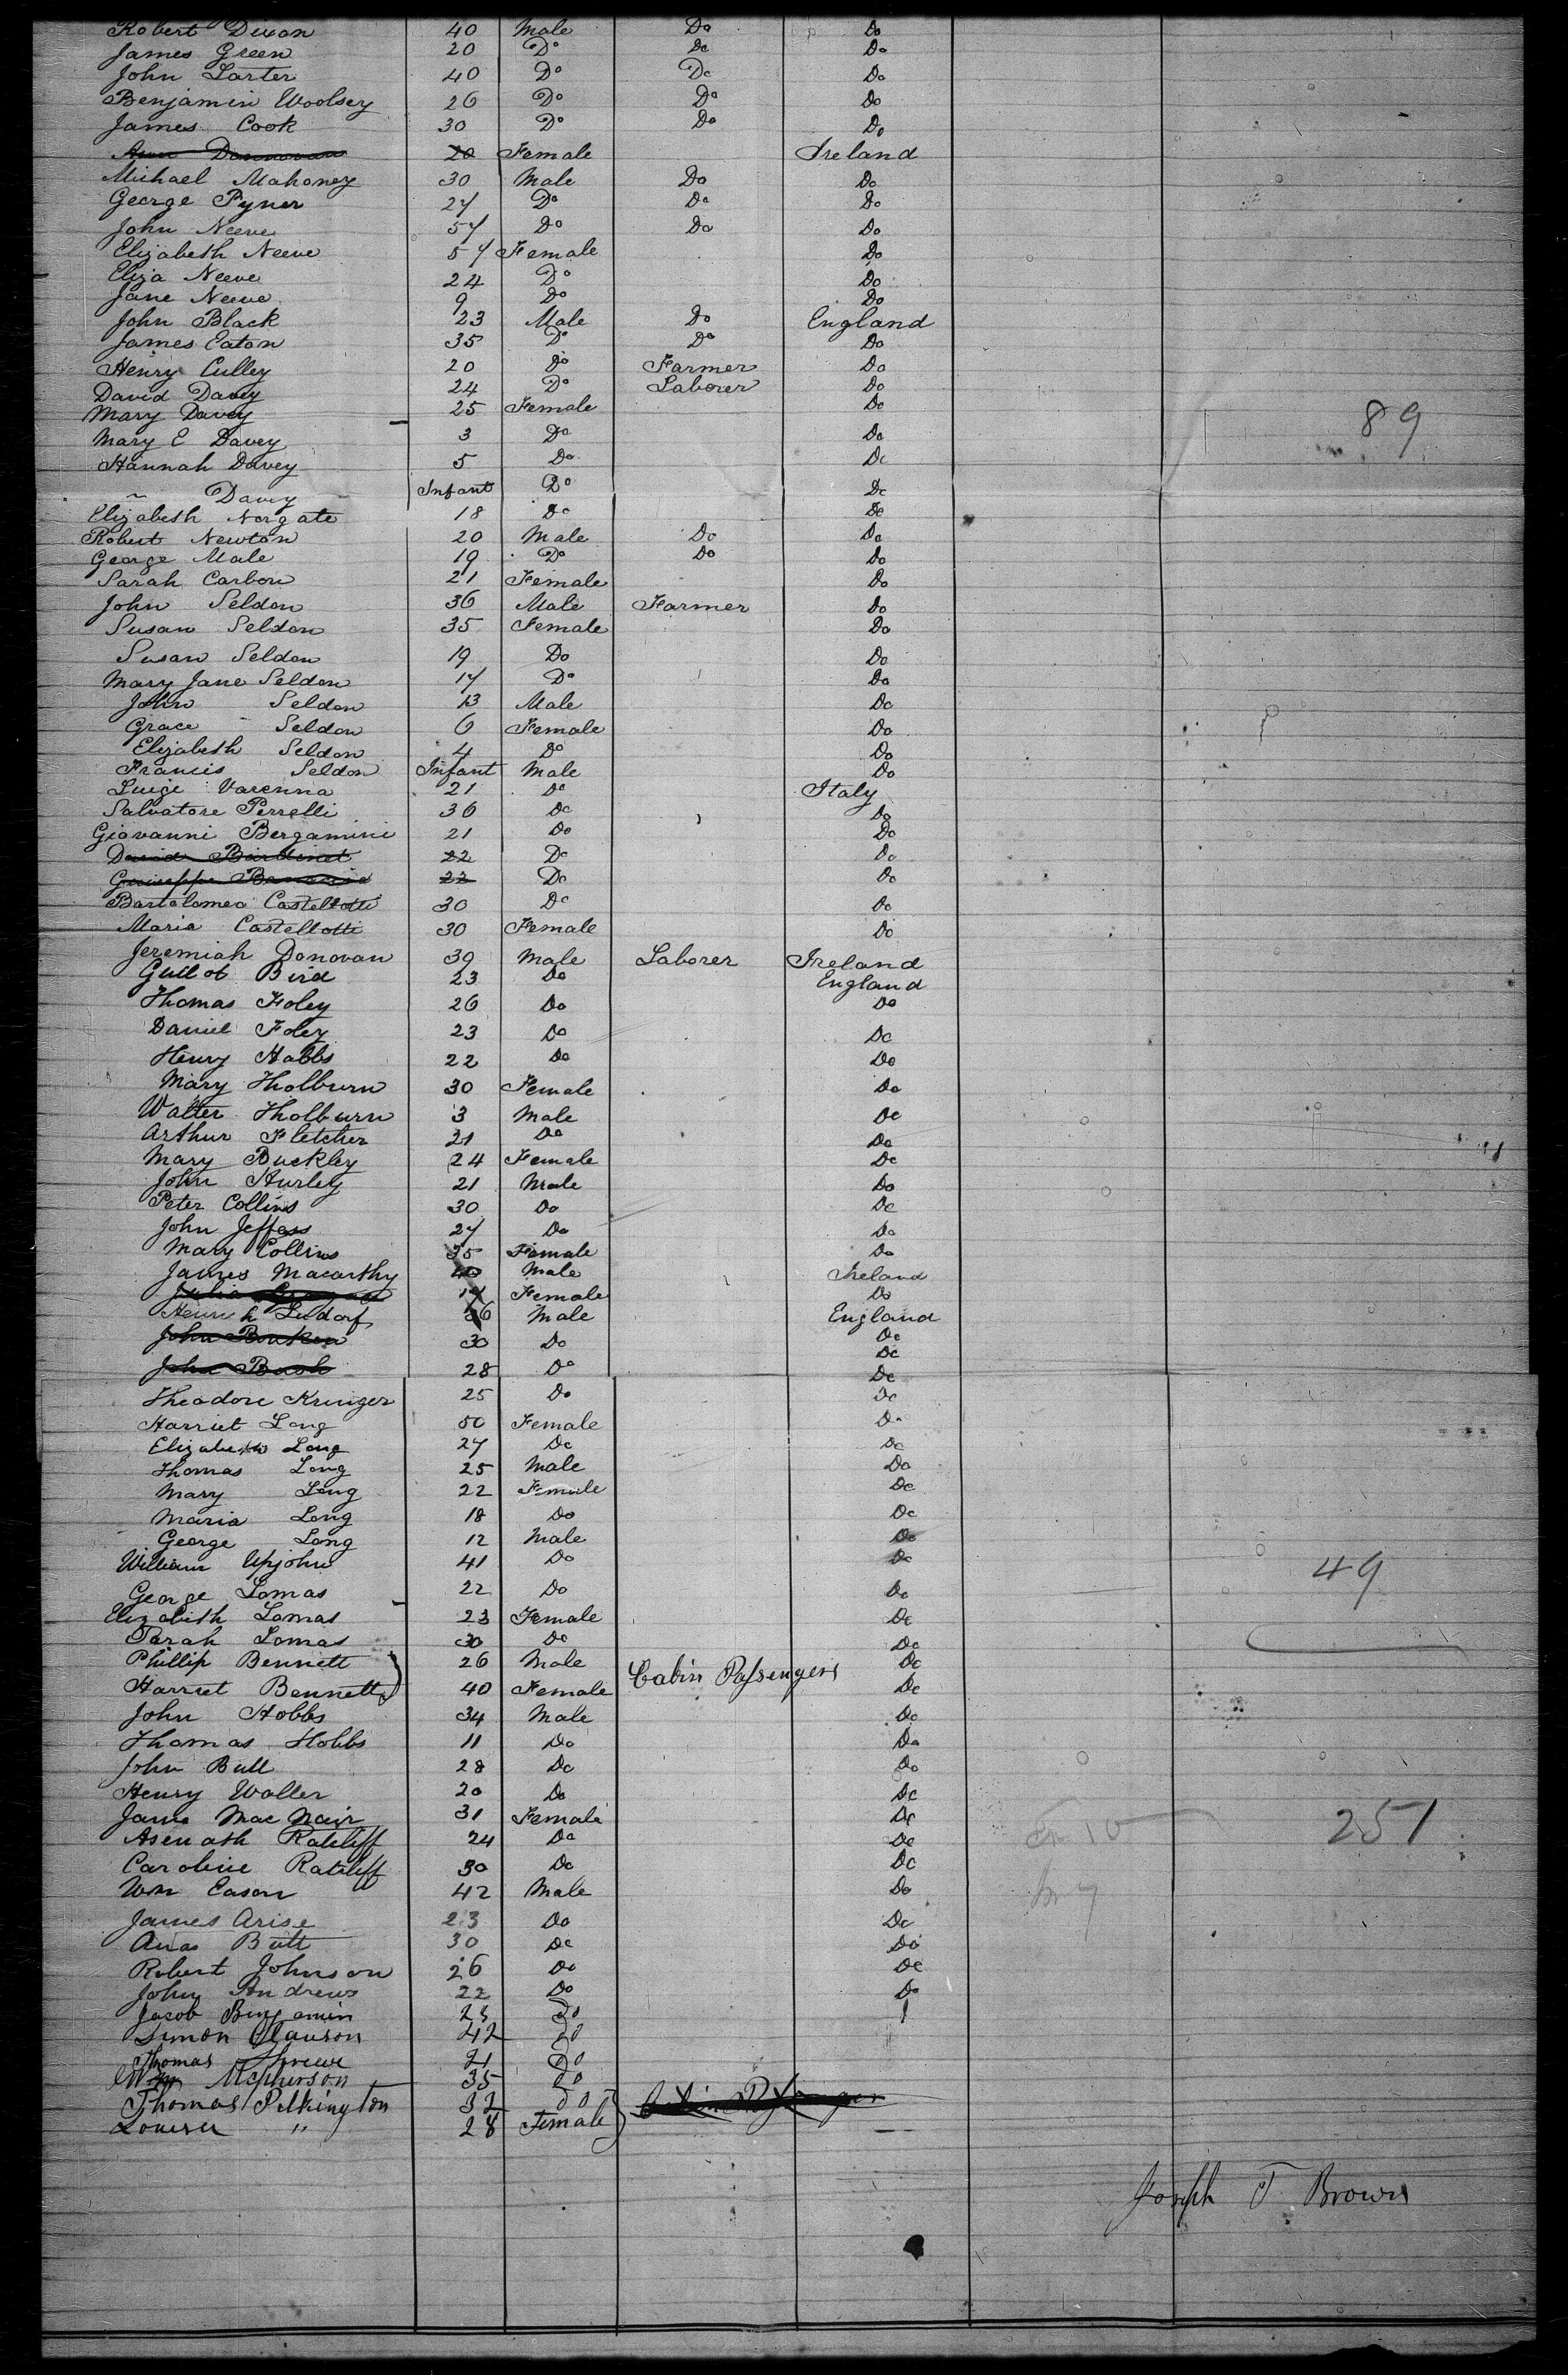 Robert Dixon 40 Male Do Do
James Green 20 Do Do Do
John Larter 40 Do Do Do
Benjamin Woolsey 26 Do Do Do
James Cook 30 Do Do Do
Ann Donnovan 20 Female Ireland
Michael Mahoney 30 Male Do Do
George Pyner 27 Do Do Do
John Neeve 57 Do Do Do
Elizabeth Neeve 57 Female Do
Eliza Neeve 24 Do Do
Jane Neeve 9 Do Do
John Black 23 Male Do England
James Eaton 35 Do Do Do
Henry Culley 20 Do Farmer Do
David Davey 24 Do Laborer Do
Mary Davey 25 Female Do 89
Mary E Davey 3 Do Do
Hannah Davey 5 Do Do
~ Davey Infant Do Do
Elizabeth Norgate 18 Do Do
Robert Newton 20 Male Do Do
George Male 19 Do Do Do
Sarah Carbon 21 Female Do
John Seldon 36 Male Farmer Do
Susan Seldon 35 Female Do
Susan Seldon 19 Do Do
Mary Jane Seldon 17 Do Do
John Seldon 13 Male Do
Grace Seldon 6 Female Do
Elizabeth Seldon 4 Do Do
Francis Seldon Infant Male Do
Luige Varenna 21 Do Italy
Salvatore Perrelli 36 Do Do
Giovanni Bergamini 21 Do Do
David Bardinet 22 Do Do
Guiseppe 22 Do Do
Bartolomeo Castellotti 30 Do Do
Maria Castellotti 30 Female Do
Jeremiah Donovan 39 Male Laborer Ireland
Bird 23 Do England
Thomas Foley 26 Do Do
Daniel Foley 23 Do Do
Henry Habbs 22 Do Do
Mary Tholburn 30 Female Do
Walter Tholburn 3 Male Do
Arthur Fletcher 21 Do Do
Mary Buckley 24 Female Do
John Hurley 21 Male Do
Peter Collins 30 Do Do
John Jeffass 27 Do Do
Mary Collins 35 Female Do
James Macarthy 40 Male Ireland
Julia Female Do
Henrich Ludorf 36 Male England
John 30 Do Do
Do
John Bash 28 Do Do
Theodore Kruger 25 Do Do
Harriet Long 50 Female Do
Elizabeth Long 27 Do Do
Thomas Long 25 Male Do
Mary Long 22 Female Do
Maria Long 18 Do Do
George Long 12 Male Do
William Upjohn 41 Do Do 49
George Lomas 22 Do Do
Elizabeth Lomas 23 Female Do
Sarah Lomas 30 Do Do
Phillip Bennett 26 Male Cabin Passengers Do
Harriet Bennett 40 Female Do
John Hobbs 34 Male Do
Thomas Hobbs 11 Do Do
John Bull 28 Do Do
Henry Waller 20 Do Do
Jane Mac Nair 31 Female Do 251
Asenath Ratcliff 24 Do Do
Caroline Ratcliff 30 Do Do
Wm Eason 42 Male Do
James Arise 23 Do Do
Butt 30 Do Do
Robert Johnson 26 Do Do
John Andrews 22 Do Do
Jacob Benjamin 23 Do
Simon Clauson 42 Do
Thomas 21 Do
Wm Mcpherson 35 Do
Thomas Pilkington 32 Do Cabin Passenger
Louisa " 28 Female
Joseph T Brown